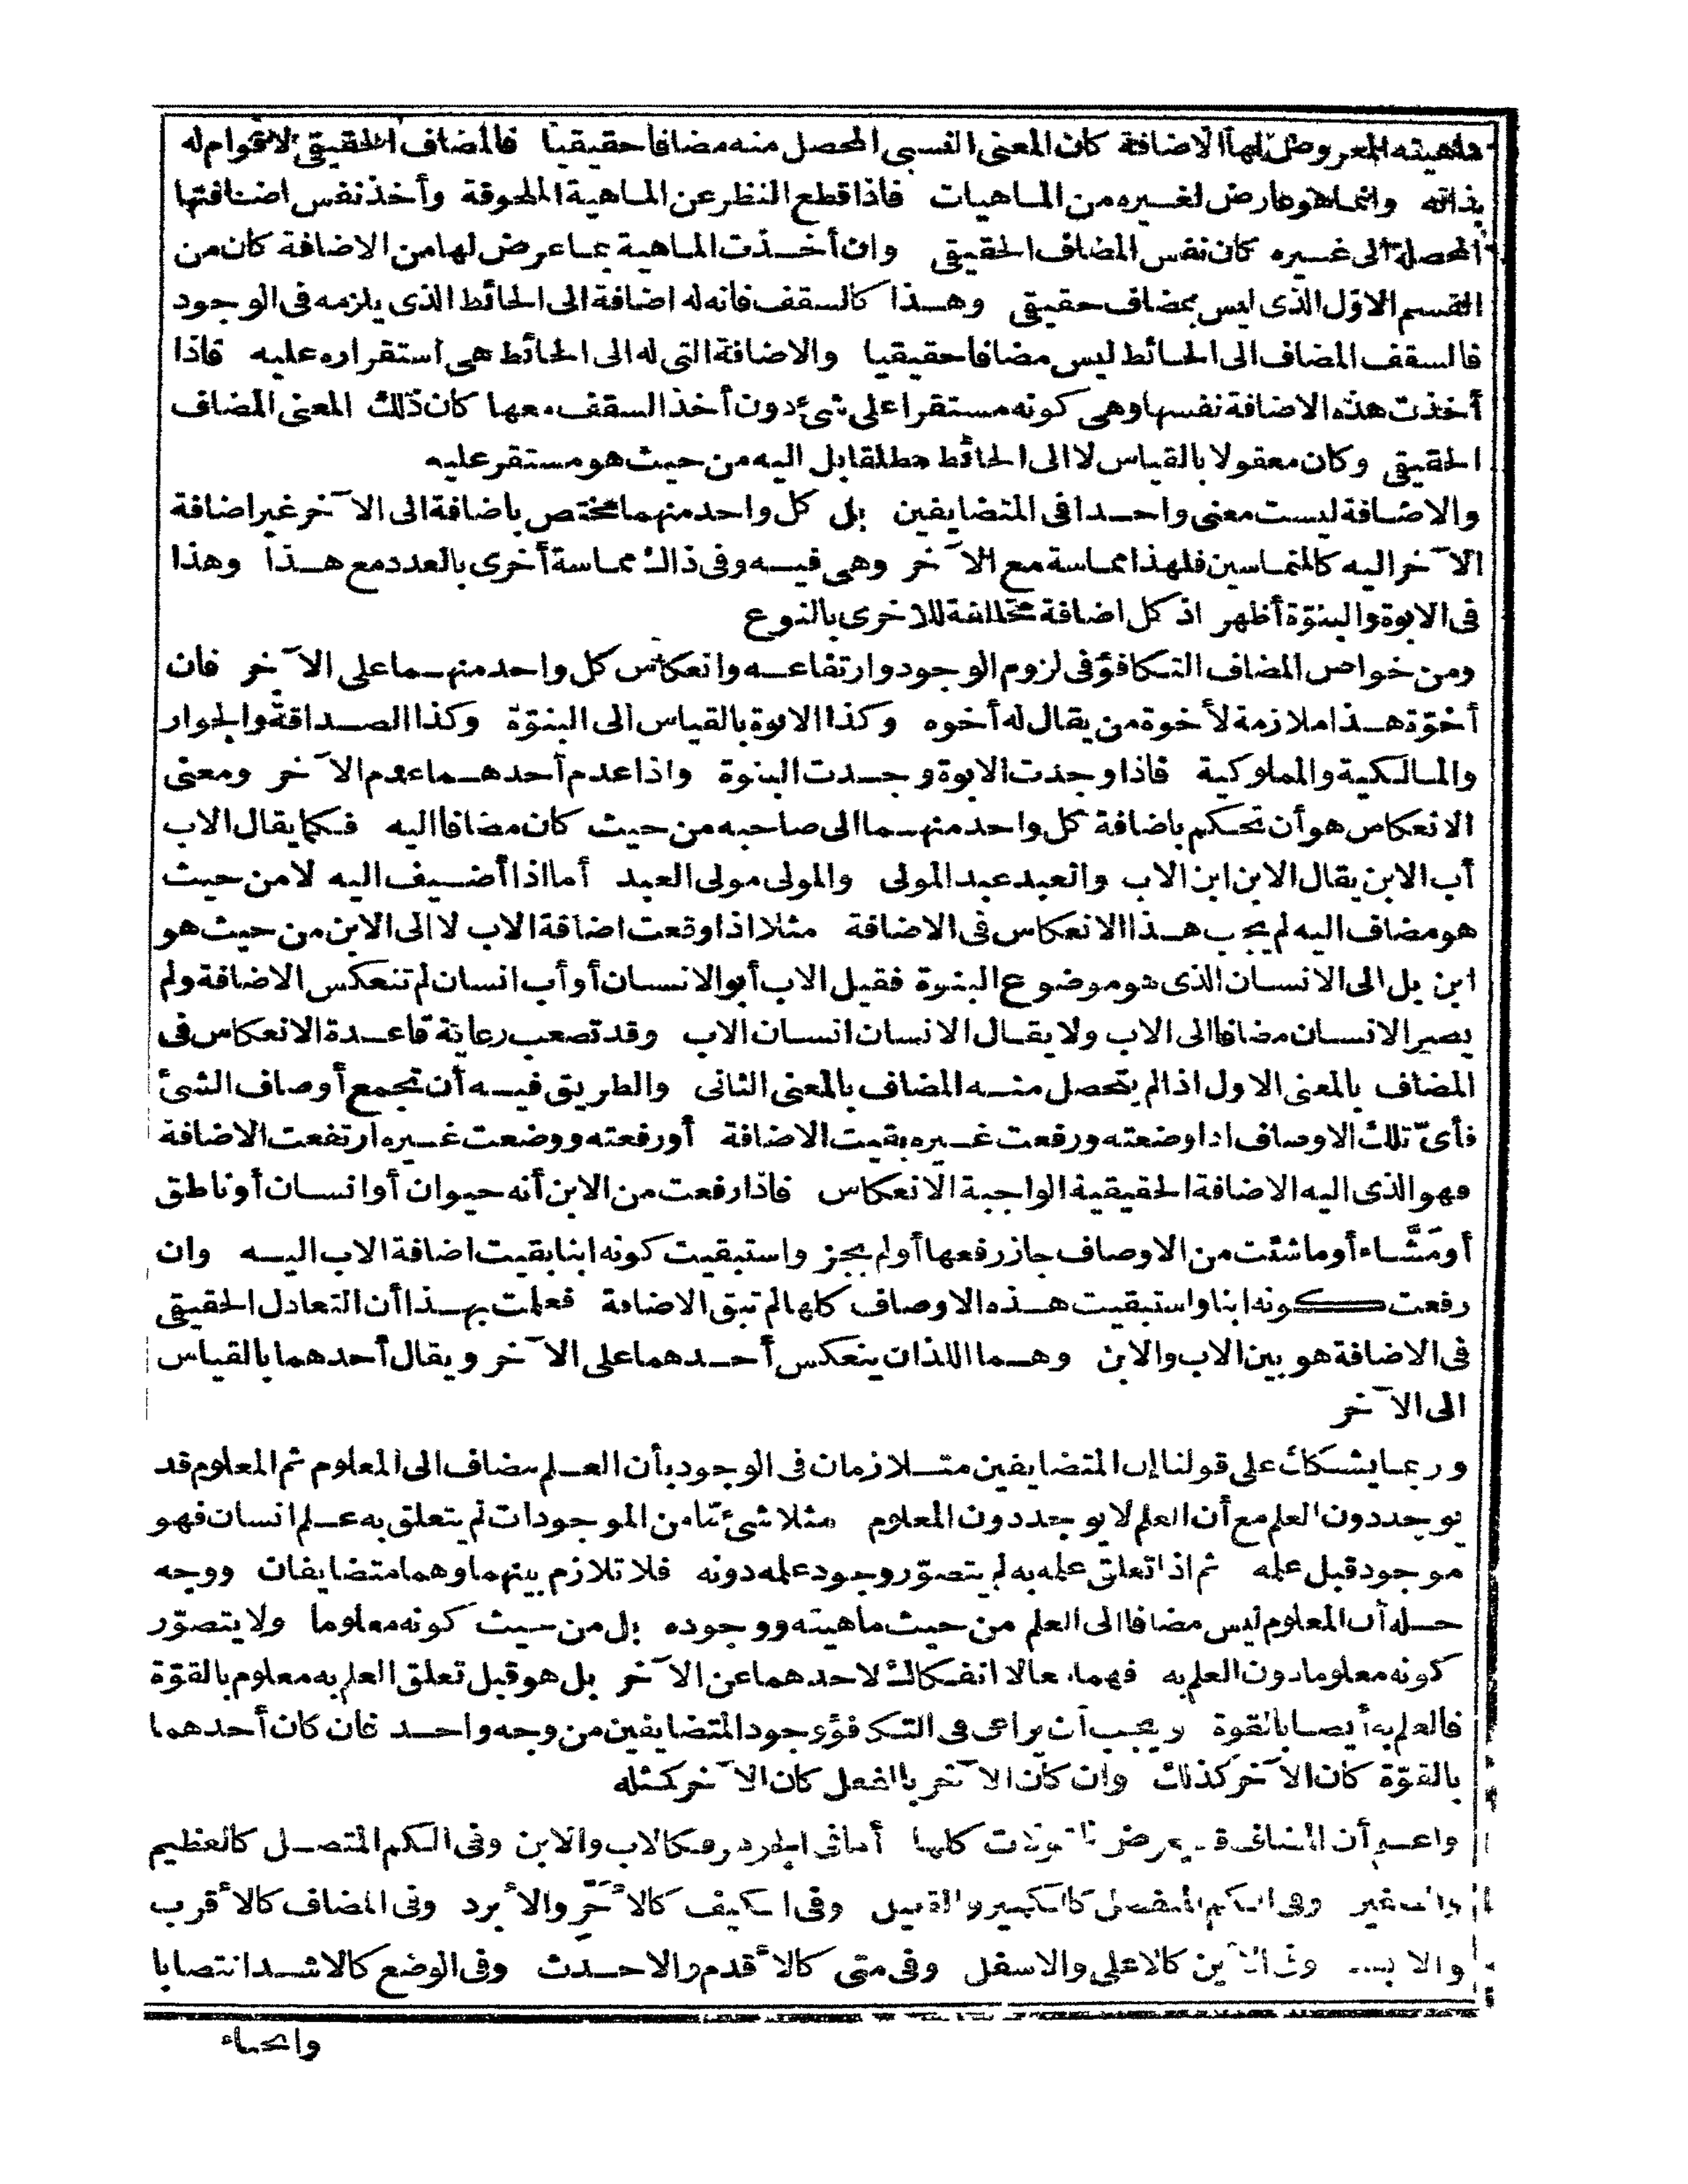 ماهيته المعروض لها الاضافة كان المعنى النسبى المحصل منه مضافا حقيقيا فالمضاف الحقيقى لا قوام له
بذاته وانما هو عارض لغيره من الماهيات فاذا قطع النظر عن الماهية الملحوقة وأخذ نفس اضافتها
المحصلة الى غيره كان نفس المضاف الحقيقى وان أخذت الماهية بما عرض لها من الاضافة كان من
القسم الاوّل الذى ليس بمضاف حقيقى وهذا كالسقف فانه له اضافة الى الحائط الذى يلزمه فى الوجود
فالسقف المضاف الى الحائط ليس مضافا حقيقيا والاضافة التى له الى الحائط هى استقراره عليه فاذا
أخذت هذه الاضافة نفسها وهى كونه مستقرا على شئ دون أخذ السقف معها كان ذلك المعنى المضاف
الحقيقى وكان معقولا بالقياس لا الى الحائط مطلقا بل اليه من حيث هو مستقر عليه
والاضافة ليست معنى واحدا فى المتضايفين بل كل واحد منهما مختص باضافة الى الآخر غير اضافة
الآخر اليه كالمتماسين فلهذا مماسة مع الآخر وهى فيه وفى ذاك مماسة أخرى بالعدد مع هذا وهذا
فى الابوة والبنوّة أظهر اذ كل اضافة مخالفة للاخرى بالنوع
ومن خواص المضاف التكافؤ فى لزوم الوجود وارتفاعه وانعكاس كل واحد منهما على الآخر فان
أخوّة هذا ملازمة لأخوة من يقال له أخوه وكذا الابوة بالقياس الى البنوّة وكذا الصداقة والجوار
والمالكية والمملوكية فاذا وجدت الابوة وجدت البنوة واذا عدم أحدهما عدم الآخر ومعنى
الانعكاس هو أن تحكم باضافة كل واحد منهما الى صاحبه من حيث كان مضافا اليه فكما يقال الاب
أب الابن يقال الابن ابن الاب والعبد عبد المولى والمولى مولى العبد أما اذا أضيف اليه لا من حيث
هو مضاف اليه لم يجب هذا الانعكاس فى الاضافة مثلا اذا وقعت اضافة الاب لا الى الابن من حيث هو
ابن بل الى الانسان الذى هو موضوع البنوة فقيل الاب أبو الانسان أو أب انسان لم تنعكس الاضافة ولم
يصير الانسان مضافا الى الاب ولا يقال الانسان انسان الاب وقد تصعب رعاية قاعدة الانعكاس فى
المضاف بالمعنى الاول اذا لم يتحصل منه المضاف بالمعنى الثانى والطريق فيه أن تجمع أوصاف الشئ
فأىّ تلك الاوصاف اذا وضعته ورفعت غيره بقيت الاضافة أو رفعته ووضعت غيره ارتفعت الاضافة
فهو الذى اليه الاضافة الحقيقية الواجبة الانعكاس فاذا رفعت من الابن أنه حيوان أو انسان أو ناطق
أو مَشَّاء أو ما شئت من الاوصاف جاز رفعها أو لم يجز واستبقيت كونه ابنا بقيت اضافة الاب اليه وان
رفعت كونه ابنا واستبقيت هذه الاوصاف كلها لم تبق الاضافة فعلمت بهذا أن التعادل الحقيقى
فى الاضافة هو بين الاب والابن وهما اللذان ينعكس أحدهما على الآخر ويقال أحدهما بالقياس
الى الآخر
وربما يشكك على قولنا إن المتضايفين متلازمان فى الوجود بأن العلم مضاف الى المعلوم ثم المعلوم قد
يوجد دون العلم مع أن العلم لا يوجد دون المعلوم مثلا شئ مّا من الموجودات لم يتعلق به علم انسان فهو
موجود قبل علمه ثم اذا تعلق علمه به لم يتصوّر وجود علمه دونه فلا تلازم بينهما وهما متضايفان ووجه
حله أن المعلوم ليس مضافا الى العلم من حيث ماهيته ووجوده بل من حيث كونه معلوما ولا يتصوّر
كونه معلوما دون العلم به فهما معا لا انفكاك لاحدهما عن الآخر بل هو قبل تعلق العلم به معلوم بالقوّة
فالعلم به أيضا بالقوة ويجب أن يراعى فى التكافؤ وجود المتضايفين من وجه واحد فان كان أحدهما
بالقوّة كان الآخر كذلك وان كان الآخر بالفعل كان الآخر كمثله
واعلم أن المضاف قد يعرض للمقولات كلها أما فى الجوهر فكالاب والابن وفى الكم المتصل كالعظيم
والصغير وفى الكم المنفصل كالكثير والقليل وفى الكيف كالأحَرّ والأبرد وفى المضاف كالأقرب
والابعد وفى الأين كالاعلى والاسفل وفى متى كالأقدم والاحدث وفى الوضع كالاشد انتصابا
وانحناء